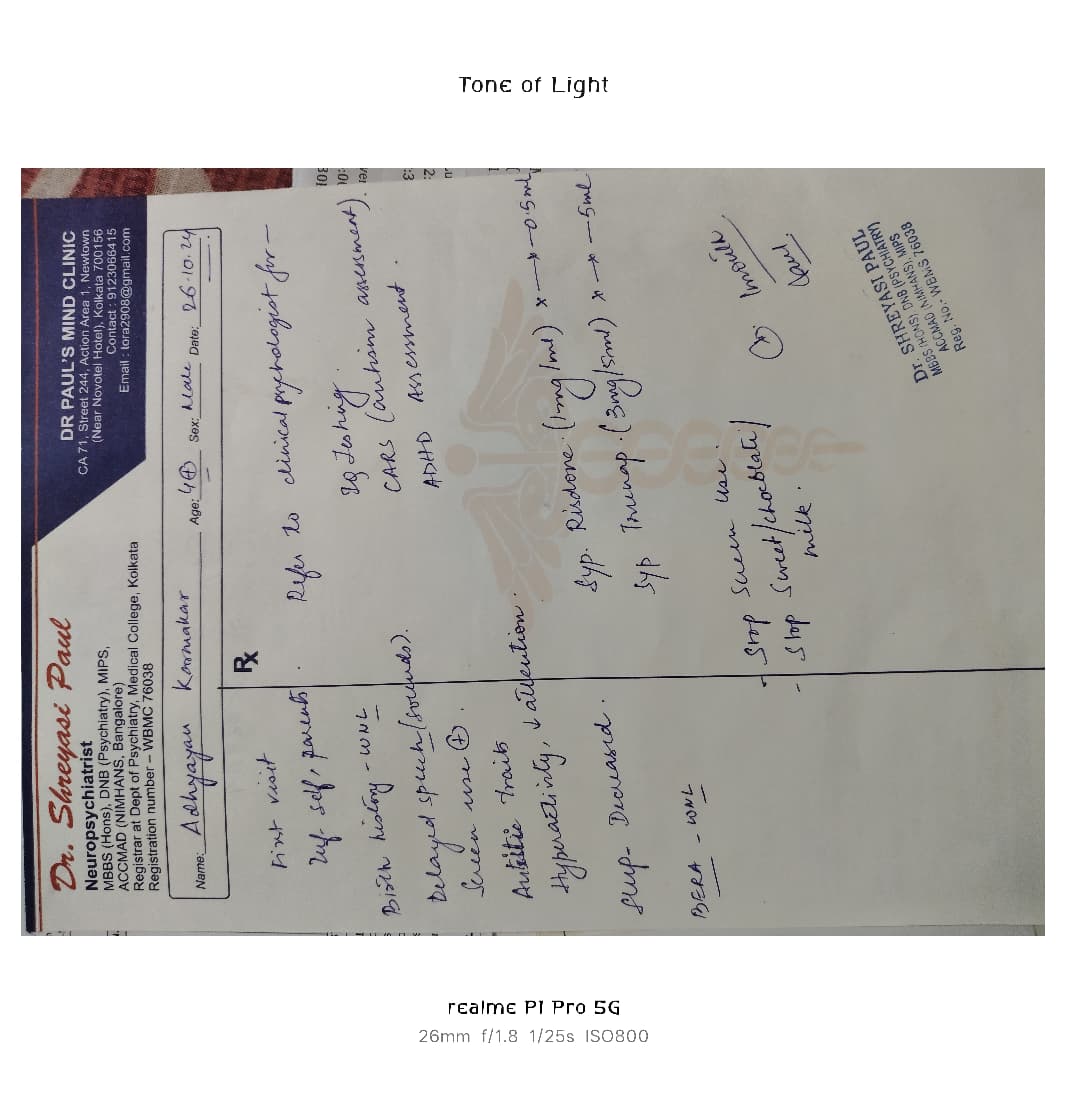 Tone of Light
Dr. Shreyasi Paul
Neuropsychiatrist
MBBS (Hons), DNB (Psychiatry), MIPS,
ACCMAD (NIMHANS, Bangalore)
Registrar at Dept of Psychiatry, Medical College, Kolkata
Registration number – WBMC 76038
DR PAUL'S MIND CLINIC
CA 71, Street 244, Action Area 1, Newtown
(Near Novotel Hotel), Kolkata 700156
Contact : 9123066415
Email : tora2908@gmail.com
Name: Adhyayan Karmakar Age: 4 Sex: Male Date: 26.10.24
First visit
Inf- self, parents.
Birth history - WNL
Delayed speech (sounds).
Screen use (+).
Autistic Traits
Hyperactivity, ↓ attention.
Sleep - Decreased.
BERA - WNL
Rx
Refer to clinical psychologist for —
IQ Testing.
CARS (autism assessment).
ADHD Assessment.
Syp. Risdone (1mg/ml) x — x — 0.5ml
Syp (3mg/5ml) x — x — 5ml
- Stop Screen use.
- Stop Sweet/chocolate/
milk.
Dr. SHREYASI PAUL
MBBS (HONS), DNB (PSYCHIATRY)
ACCMAD (NIMHANS), MIPS
Reg. No.: WBMS 76038
realme P1 Pro 5G
26mm f/1.8 1/25s ISO800